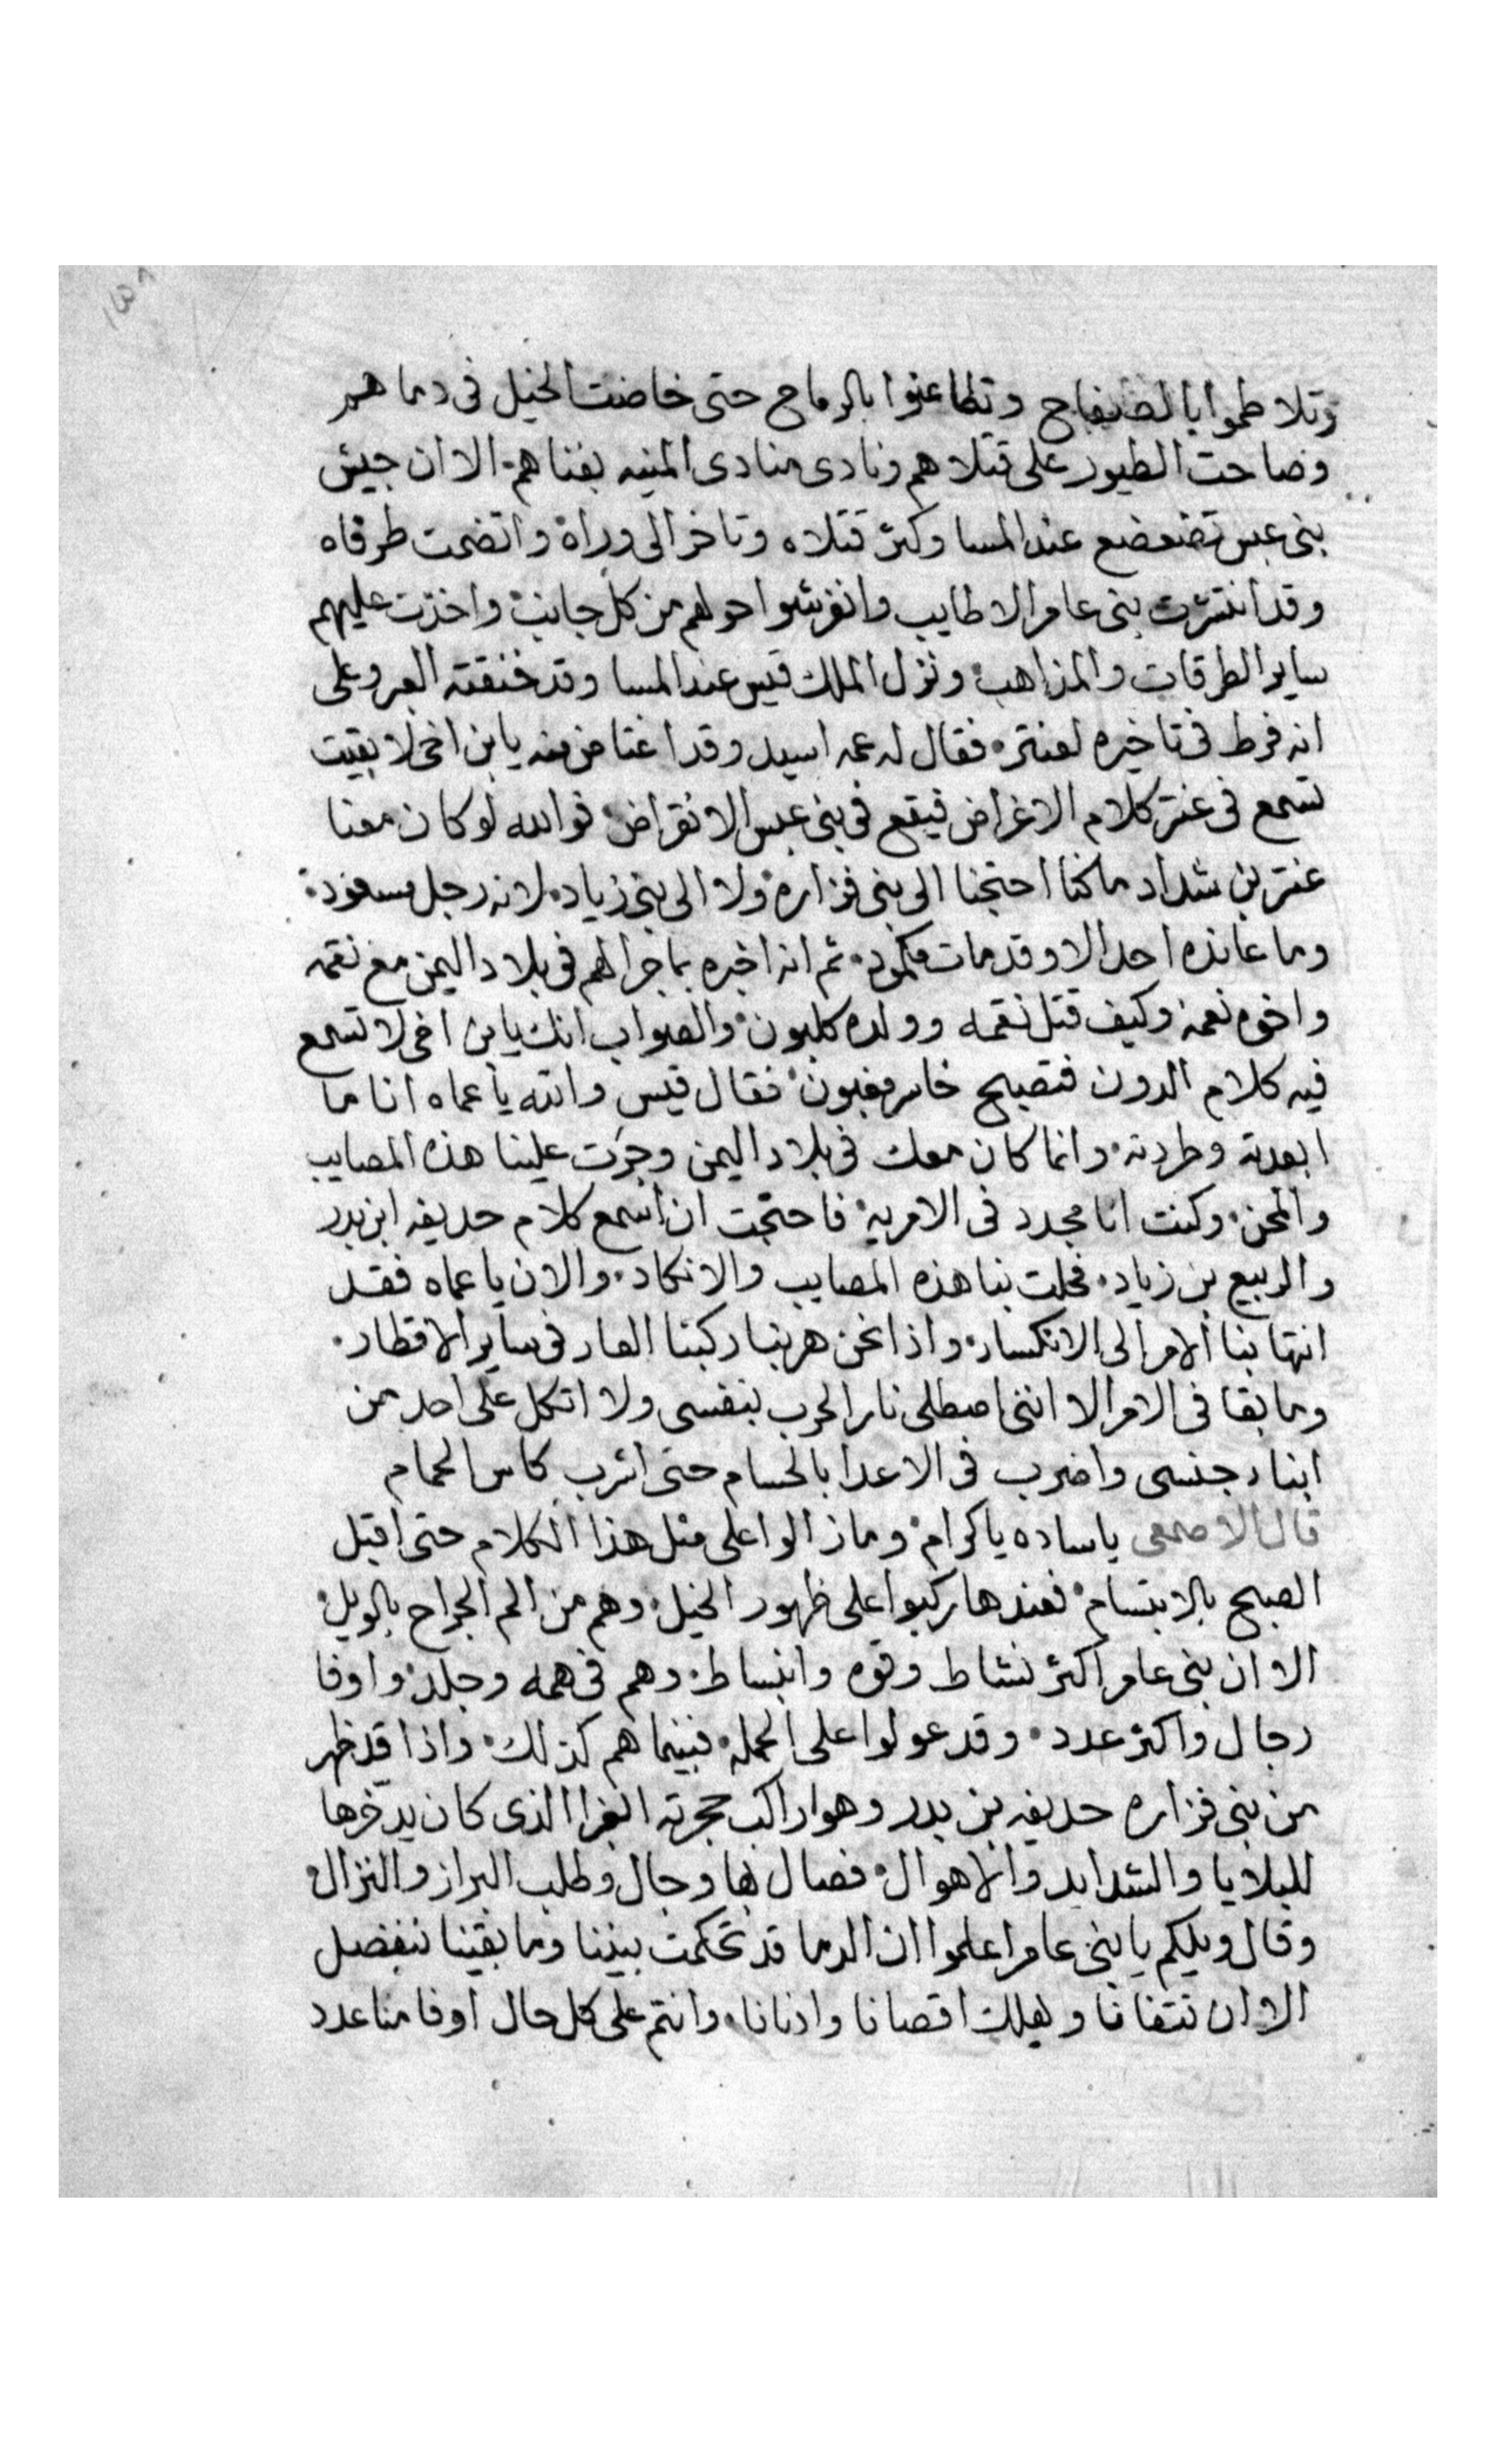 وتلاطموا بالصفاح وتطاعنوا بالرماح حتى خاضت الخيل فى دماهم
وصاحت الطيور على قتلاهم ونادى منادى المنيه بفناهم الا ان جيش
بنى عبس تضعضع عند المسا وكثر قتلاه وتاخر الى وراه واتضمت طرقاه
وقد انتشرت بنى عامر الاطايب وانفرشوا حولهم من كل جانب واخذت عليهم
ساير الطرقات والمذاهب ونزل الملك قيس عند المسا وقد خنقته العبر وعلى
انه فرط فى تاخيره لعنتر فقال له عمه اسيد وقد اغتاض منه يا بن اخى لا بقيت
تسمع فى عنتر كلام الاغراض فيقع فى بنى عبس الانقراض فوالله لو كان معنا
عنتر بن شداد ما كنا احتجنا الى بنى فزاره ولا الى بنى زياد لانه رجل مسعود
وما عانده احد الا وقد مات مكمود ثم انه اخبره بما جرا لهم فى بلاد اليمن مع نقمه
واخوه نعمه وكيف قتل نقمه وولده كلبون والصواب انك يا بن اخى لا تسمع
فيه كلام الدون فتصبح خاسر مغبون فقال قيس والله يا عماه انا ما
ابعدته وطردته وانما كان معك فى بلاد اليمن وجرت علينا هذه المصايب
والمحن وكنت انا مجدد فى الامريه فاحتجت ان اسمع كلام حديفه ابن بدر
والربيع بن زياد فحلت بنا هذه المصايب والانكاد والان يا عماه فقد
انتها بنا الامر الى الانكسار واذا نحن هربنا ركبنا العار فى ساير الاقطار
وما بقا فى الامر الا اننى اصطلى نار الحرب بنفسى ولا اتكل على احد من
ابناء جنسى واضرب فى الاعدا بالحسام حتى اشرب كاس الحمام
قال الاصمعى ياساده ياكرام وما زالوا على مثل هذا الكلام حتى اقبل
الصبح بالابتسام فعندها ركبوا على ظهور الخيل وهم من الم الجراح بالويل
الا ان بنى عامر اكثر نشاط وقوه وانبساط وهم فى همه وجلد واوفا
رجال واكثر عدد وقد عولوا على الحمله فبينما هم كذلك واذا قد ظهر
من بنى فزاره حديفه بن بدر وهوا راكب حجرته الغبرا الذى كان يدخرها
للبلايا والشدايد والاهوال فصال بها وجال وطلب البراز والنزال
وقال ويلكم يا بنى عامر اعلموا ان الدما قد تحكمت بيننا وما بقينا ننفصل
الا ان نتفانا ويهلك اقصانا وادنانا وانتم على كل حال اوفا منا عدد